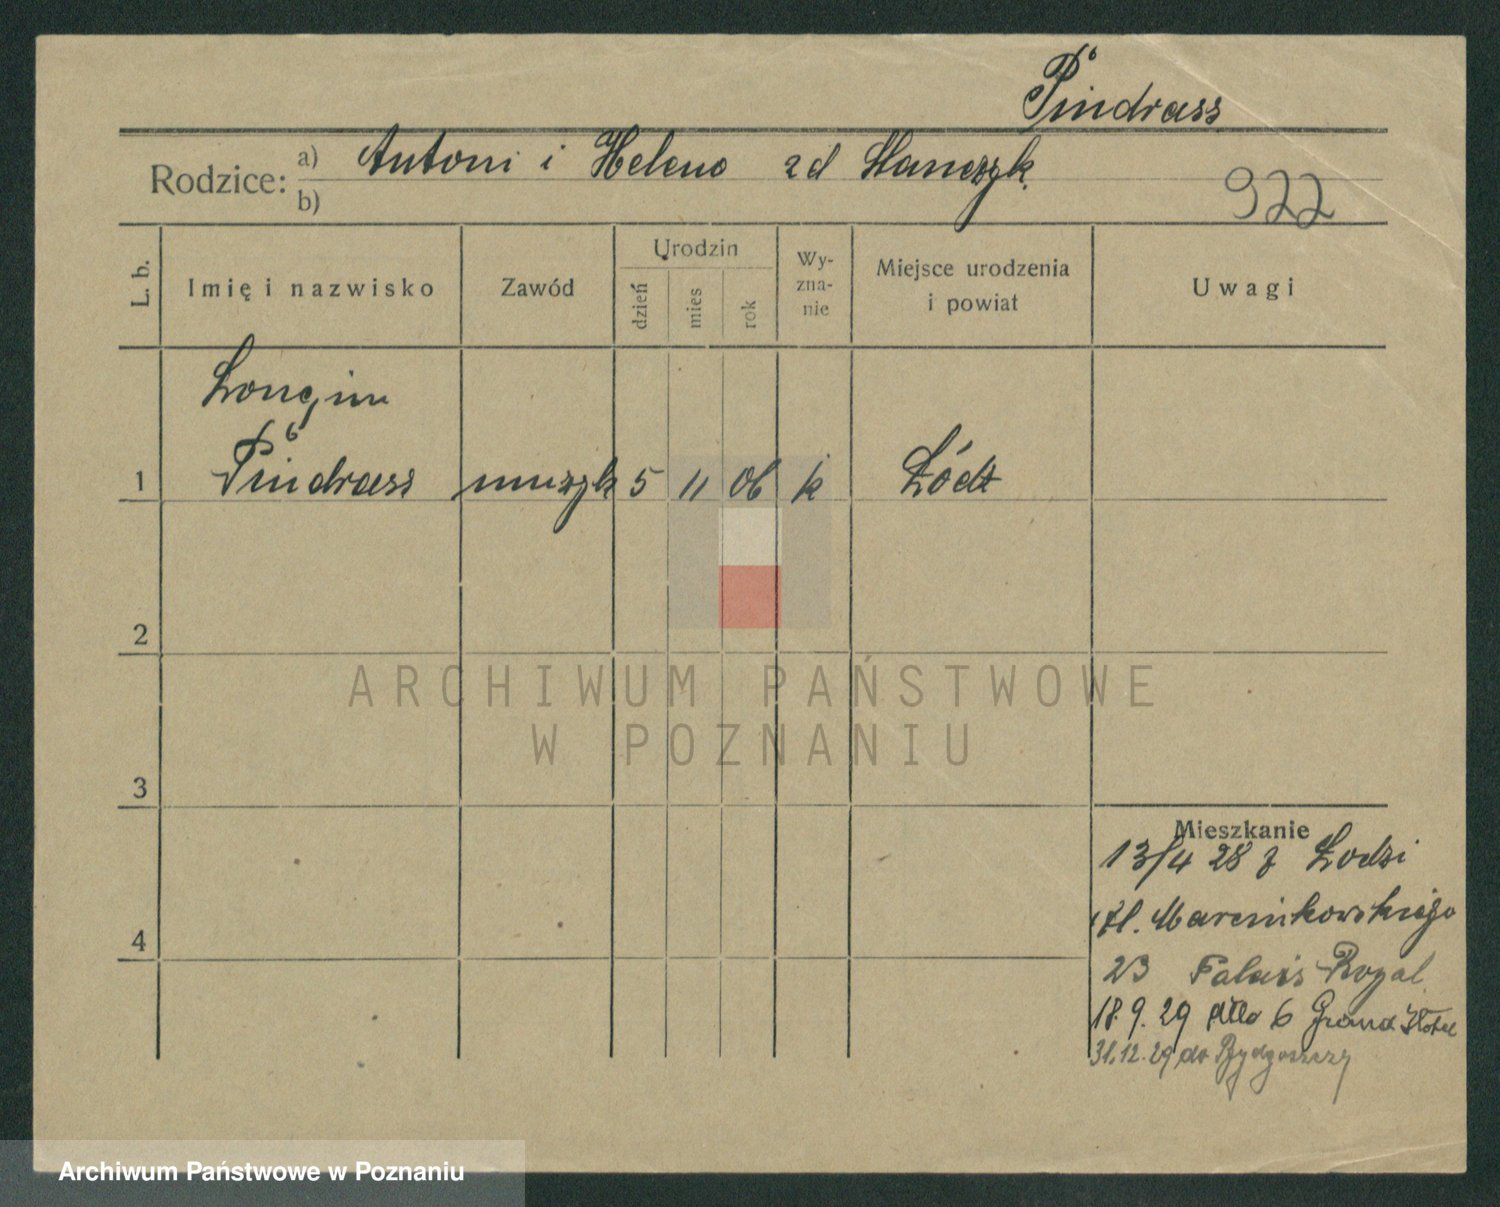 Pindrass
Rodzice: a) Antoni i Helena zd Stanczyk
b)
922
L. b.
Imię i nazwisko
Zawód
Urodzin
dzień
mies
rok
Wy-
zna-
nie
Miejsce urodzenia
i powiat
Uwagi
Longin
1 Pindrass muzyk 5 11 06 k Łódź
2
3
4
ARCHIWUM PAŃSTWOWE
W POZNANIU
Mieszkanie
13/4 28 z Łodzi
Al. Marcinkowskiego
23 Palais Royal
18.9.29 dtto 6 Grand Hotel
31.12.29 do Bydgoszczy
Archiwum Państwowe w Poznaniu